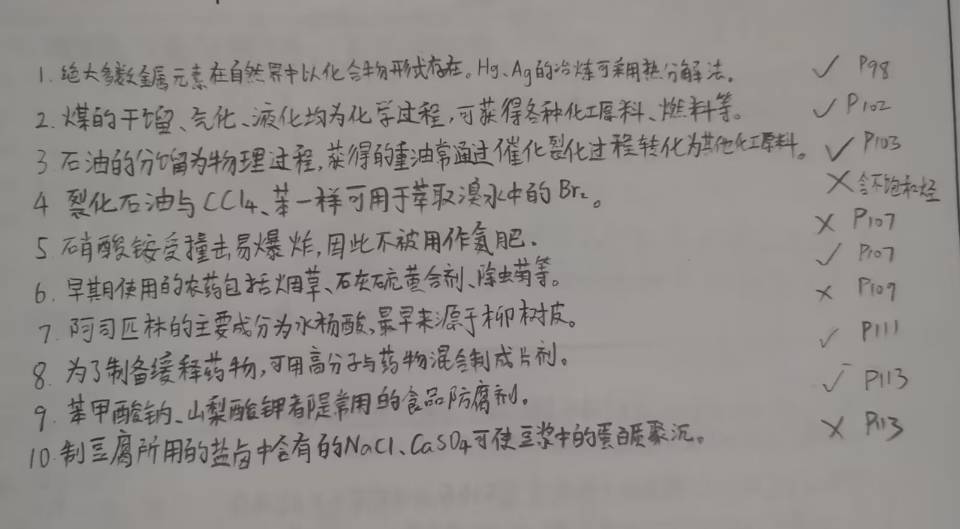 1. 绝大多数金属元素在自然界中以化合物形式存在。Hg、Ag的冶炼可采用热分解法。 ✓ P98
2. 煤的干馏、气化、液化均为化学过程,可获得各种化工原料、燃料等。 ✓ P102
3 石油的分馏为物理过程,获得的重油常通过催化裂化过程转化为其他化工原料。 ✓ P103
4 裂化石油与CCl4、苯一样可用于萃取溴水中的Br2。 ✗ 含不饱和烃
5. 硝酸铵受撞击易爆炸,因此不被用作氮肥. ✗ P107
6. 早期使用的农药包括烟草、石灰硫黄合剂、除虫菊等。 ✓ P107
7. 阿司匹林的主要成分为水杨酸,最早来源于柳树皮。 ✗ P109
8. 为了制备缓释药物,可用高分子与药物混合制成片剂。 ✓ P111
9. 苯甲酸钠、山梨酸钾都是常用的食品防腐剂。 ✓ P113
10. 制豆腐所用的盐卤中含有的NaCl、CaSO4可使豆浆中的蛋白质聚沉。 ✗ P113